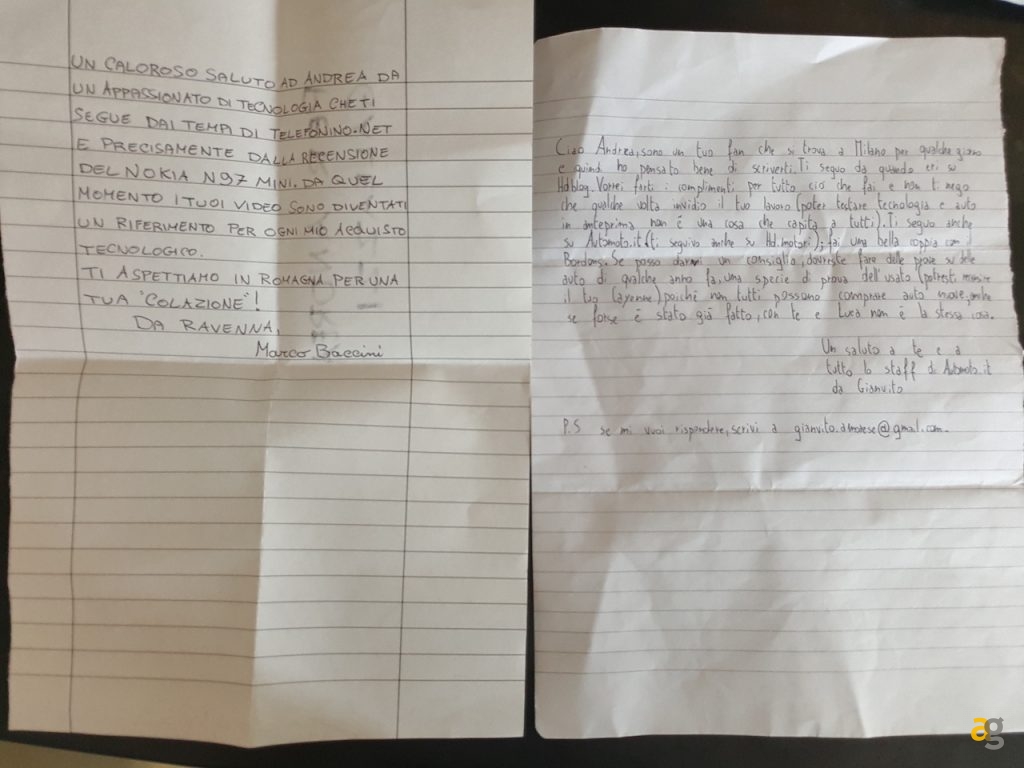 UN CALOROSO SALUTO AD ANDREA DA
UN APPASSIONATO DI TECNOLOGIA CHE TI
SEGUE DAI TEMPI DI TELEFONINO.NET
E PRECISAMENTE DALLA RECENSIONE
DEL NOKIA N97 MINI. DA QUEL
MOMENTO I TUOI VIDEO SONO DIVENTATI
UN RIFERIMENTO PER OGNI MIO ACQUISTO
TECNOLOGICO.
TI ASPETTIAMO IN ROMAGNA PER UNA
TUA "COLAZIONE"!
DA RAVENNA,
Marco Baccini
Ciao Andrea, sono un tuo fan che si trova a Milano per qualche giorno
e quindi ho pensato bene di scriverti. Ti seguo da quando eri su
Hdblog. Vorrei farti i complimenti per tutto ciò che fai e non ti nego
che qualche volta invidio il tuo lavoro (poter testare tecnologia e auto
in anteprima non è una cosa che capita a tutti). Ti seguo anche
su Automoto.it (ti seguivo anche su Hd.motori); fai una bella coppia con il
Bordons. Se posso darvi un consiglio, dovreste fare delle prove su delle
auto di qualche anno fa, una specie di prova dell'usato (potresti
il tuo Cayenne) poiché non tutti possono comprare auto nuove, anche
se forse è stato già fatto, con te e Luca non è la stessa cosa.
Un saluto a te e a
tutto lo staff di Automoto.it
da Gianvito
P.S se mi vuoi rispondere, scrivi a @gmail.com.
ag